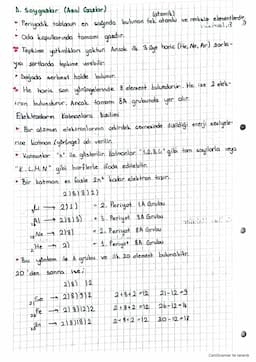 D. Soygazlar (Asal Gazlar)
• Periyodik tablonun en sağında bulunan tek atomlu ve renksiz elementlerdir.
(atomik)
• Oda koşullarında tamamı gazdır.
Tepkime yatkınlıkları yoktur. Ancak ilk 3 üye hariç (He, Ne, Ar) zorla-
yıcı şartlarda tepkime verebilir.
• Doğada serbest halde bulunur.
• He hariç son yörüngelerinde 8 element bulundurur. He ise 2 elek-
tron bulundurur. Ancak tamamı 8A grubunda yer alır.
Elektronların Katmanlara Dizilimi
• Bir atomun elektronlarının çekirdek çevresinde bulunduğu enerji seviyele-
rine katman (yörünge) adı verilir.
• Katmanlar "n" ile gösterilir. Katmanlar "1,2,3,4" gibi tam sayılarla veya
"K,L,M,N" gibi harflerle ifade edilebilir.
• Bir katman en fazla 2n² kadar elektron taşır.
2)8)8)2)
₃Li → 2)1) = 2. Periyot 1A Grubu
₁₃Al → 2)8)3) = 3. Periyot 3A Grubu
₁₀Ne → 2)8) = 2. Periyot 8A Grubu
₂He → 2) = 1. Periyot 8A Grubu
• Bu yöntem ile A grubu ve ilk 20 element bulunabilir.
20'den sonra ise;
2)8) )2
₂₁Sc → 2)8)9)2 2+8+2=12 21-12=9
₂₆Fe → 2)8)12)2 2+8+2=12 26-12=14
₃₀Zn → 2)8)18)2 2+8+2=12 30-12=18